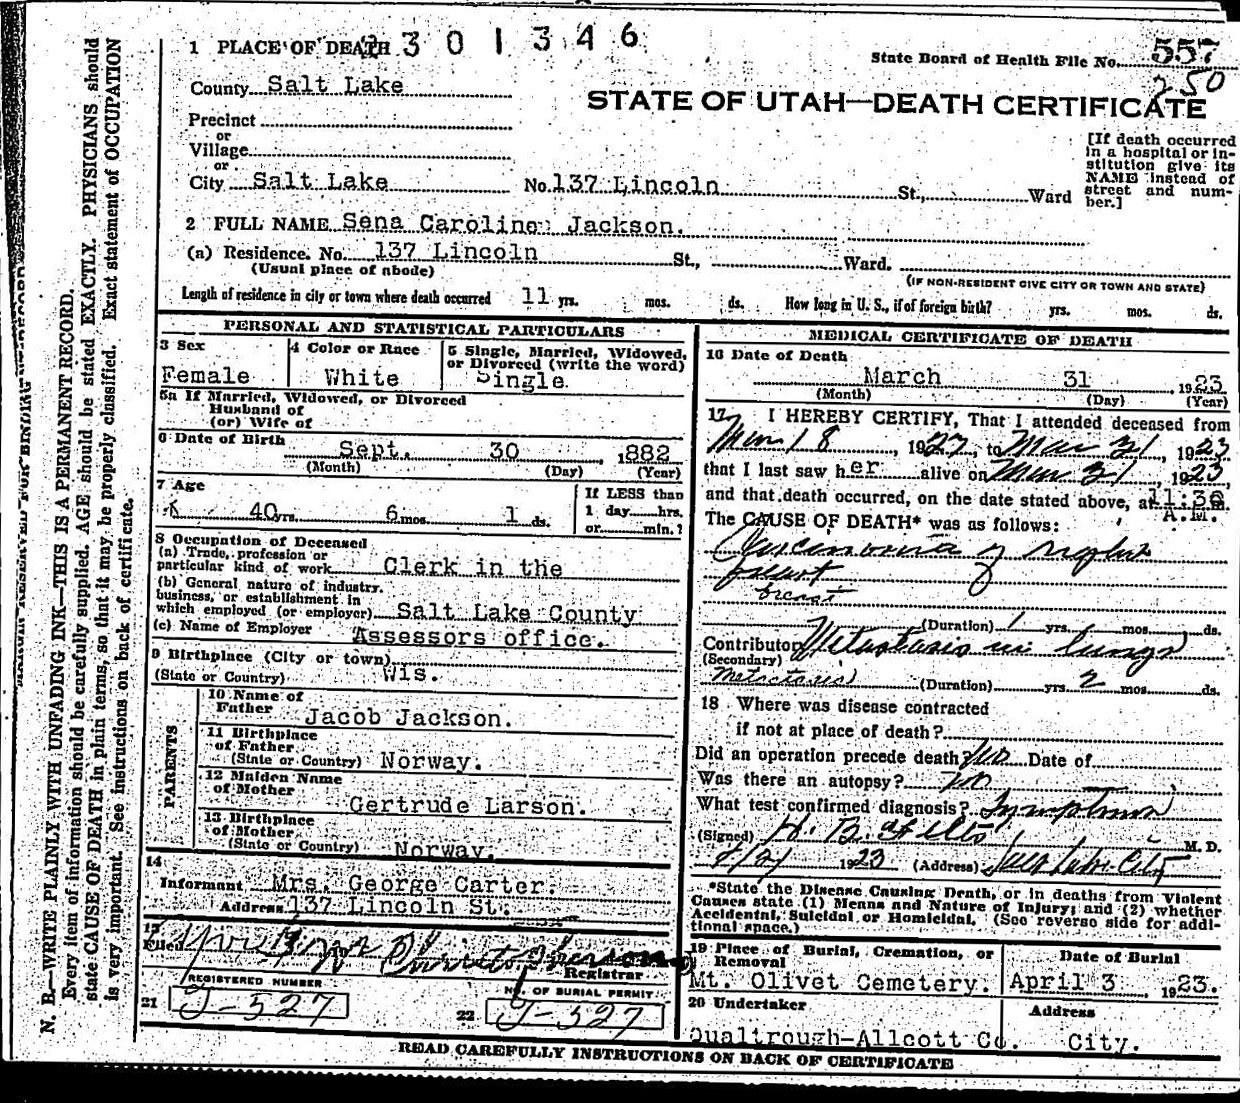 1 PLACE OF DEATH 2301346
State Board of Health File No. 557
250
County Salt Lake
STATE OF UTAH—DEATH CERTIFICATE
Precinct
or
Village
or
City Salt Lake No. 137 Lincoln St., Ward
[If death occurred in a hospital or in-
stitution give its
NAME instead of
street and num-
ber.]
2 FULL NAME Sena Caroline Jackson.
(a) Residence. No. 137 Lincoln St., Ward.
(Usual place of abode) (IF NON-RESIDENT GIVE CITY OR TOWN AND STATE)
Length of residence in city or town where death occurred 11 yrs. mos. ds. How long in U. S., if of foreign birth? yrs. mos. ds.
PERSONAL AND STATISTICAL PARTICULARS
3 Sex
Female
4 Color or Race
White
5 Single, Married, Widowed,
or Divorced (write the word)
Single
5a If Married, Widowed, or Divorced
Husband of
(or) Wife of
6 Date of Birth Sept. 30, 1882
(Month) (Day) (Year)
7 Age
40 yrs. 6 mos. 1 ds.
If LESS than
1 day hrs.
or min.?
8 Occupation of Deceased
(a) Trade, profession or
particular kind of work Clerk in the
(b) General nature of industry,
business, or establishment in
which employed (or employer) Salt Lake County
(c) Name of Employer Assessors office.
9 Birthplace (City or town)
(State or Country) Wis.
PARENTS
10 Name of
Father Jacob Jackson.
11 Birthplace
of Father
(State or Country) Norway.
12 Maiden Name
of Mother Gertrude Larson.
13 Birthplace
of Mother
(State or Country) Norway.
14
Informant Mrs. George Carter.
Address 137 Lincoln St.
15
Filed
Registrar
REGISTERED NUMBER
21 J-527
NO. OF BURIAL PERMIT
22 J-527
MEDICAL CERTIFICATE OF DEATH
16 Date of Death
March 31 1923
(Month) (Day) (Year)
17 I HEREBY CERTIFY, That I attended deceased from
18, 1922, to Mar 31, 1923
that I last saw her alive on Mar 31, 1923,
and that death occurred, on the date stated above, at 11:30 m.
A.M.
The CAUSE OF DEATH* was as follows:
Carcinoma of right
breast
breast
(Duration) 1 yrs. mos. ds.
Contributory Metastasis in lungs
(Secondary)
Metastasis (Duration) yrs. 2 mos. ds.
18 Where was disease contracted
if not at place of death?
Did an operation precede death? Date of
Was there an autopsy? no
What test confirmed diagnosis? Symptoms
(Signed) H. B. M. D.
1923 (Address) Salt Lake City
*State the Disease Causing Death, or in deaths from Violent
Causes state (1) Means and Nature of Injury; and (2) whether
Accidental, Suicidal or Homicidal. (See reverse side for addi-
tional space.)
19 Place of Burial, Cremation, or
Removal
Mt. Olivet Cemetery.
Date of Burial
April 3, 1923.
20 Undertaker
Qualtrough-Allcott Co.
Address
City.
READ CAREFULLY INSTRUCTIONS ON BACK OF CERTIFICATE
N. B.—WRITE PLAINLY WITH UNFADING INK—THIS IS A PERMANENT RECORD.
Every item of information should be carefully supplied. AGE should be stated EXACTLY. PHYSICIANS should
state CAUSE OF DEATH in plain terms, so that it may be properly classified. Exact statement of OCCUPATION
is very important. See instructions on back of certificate.
MARGIN RESERVED FOR BINDING